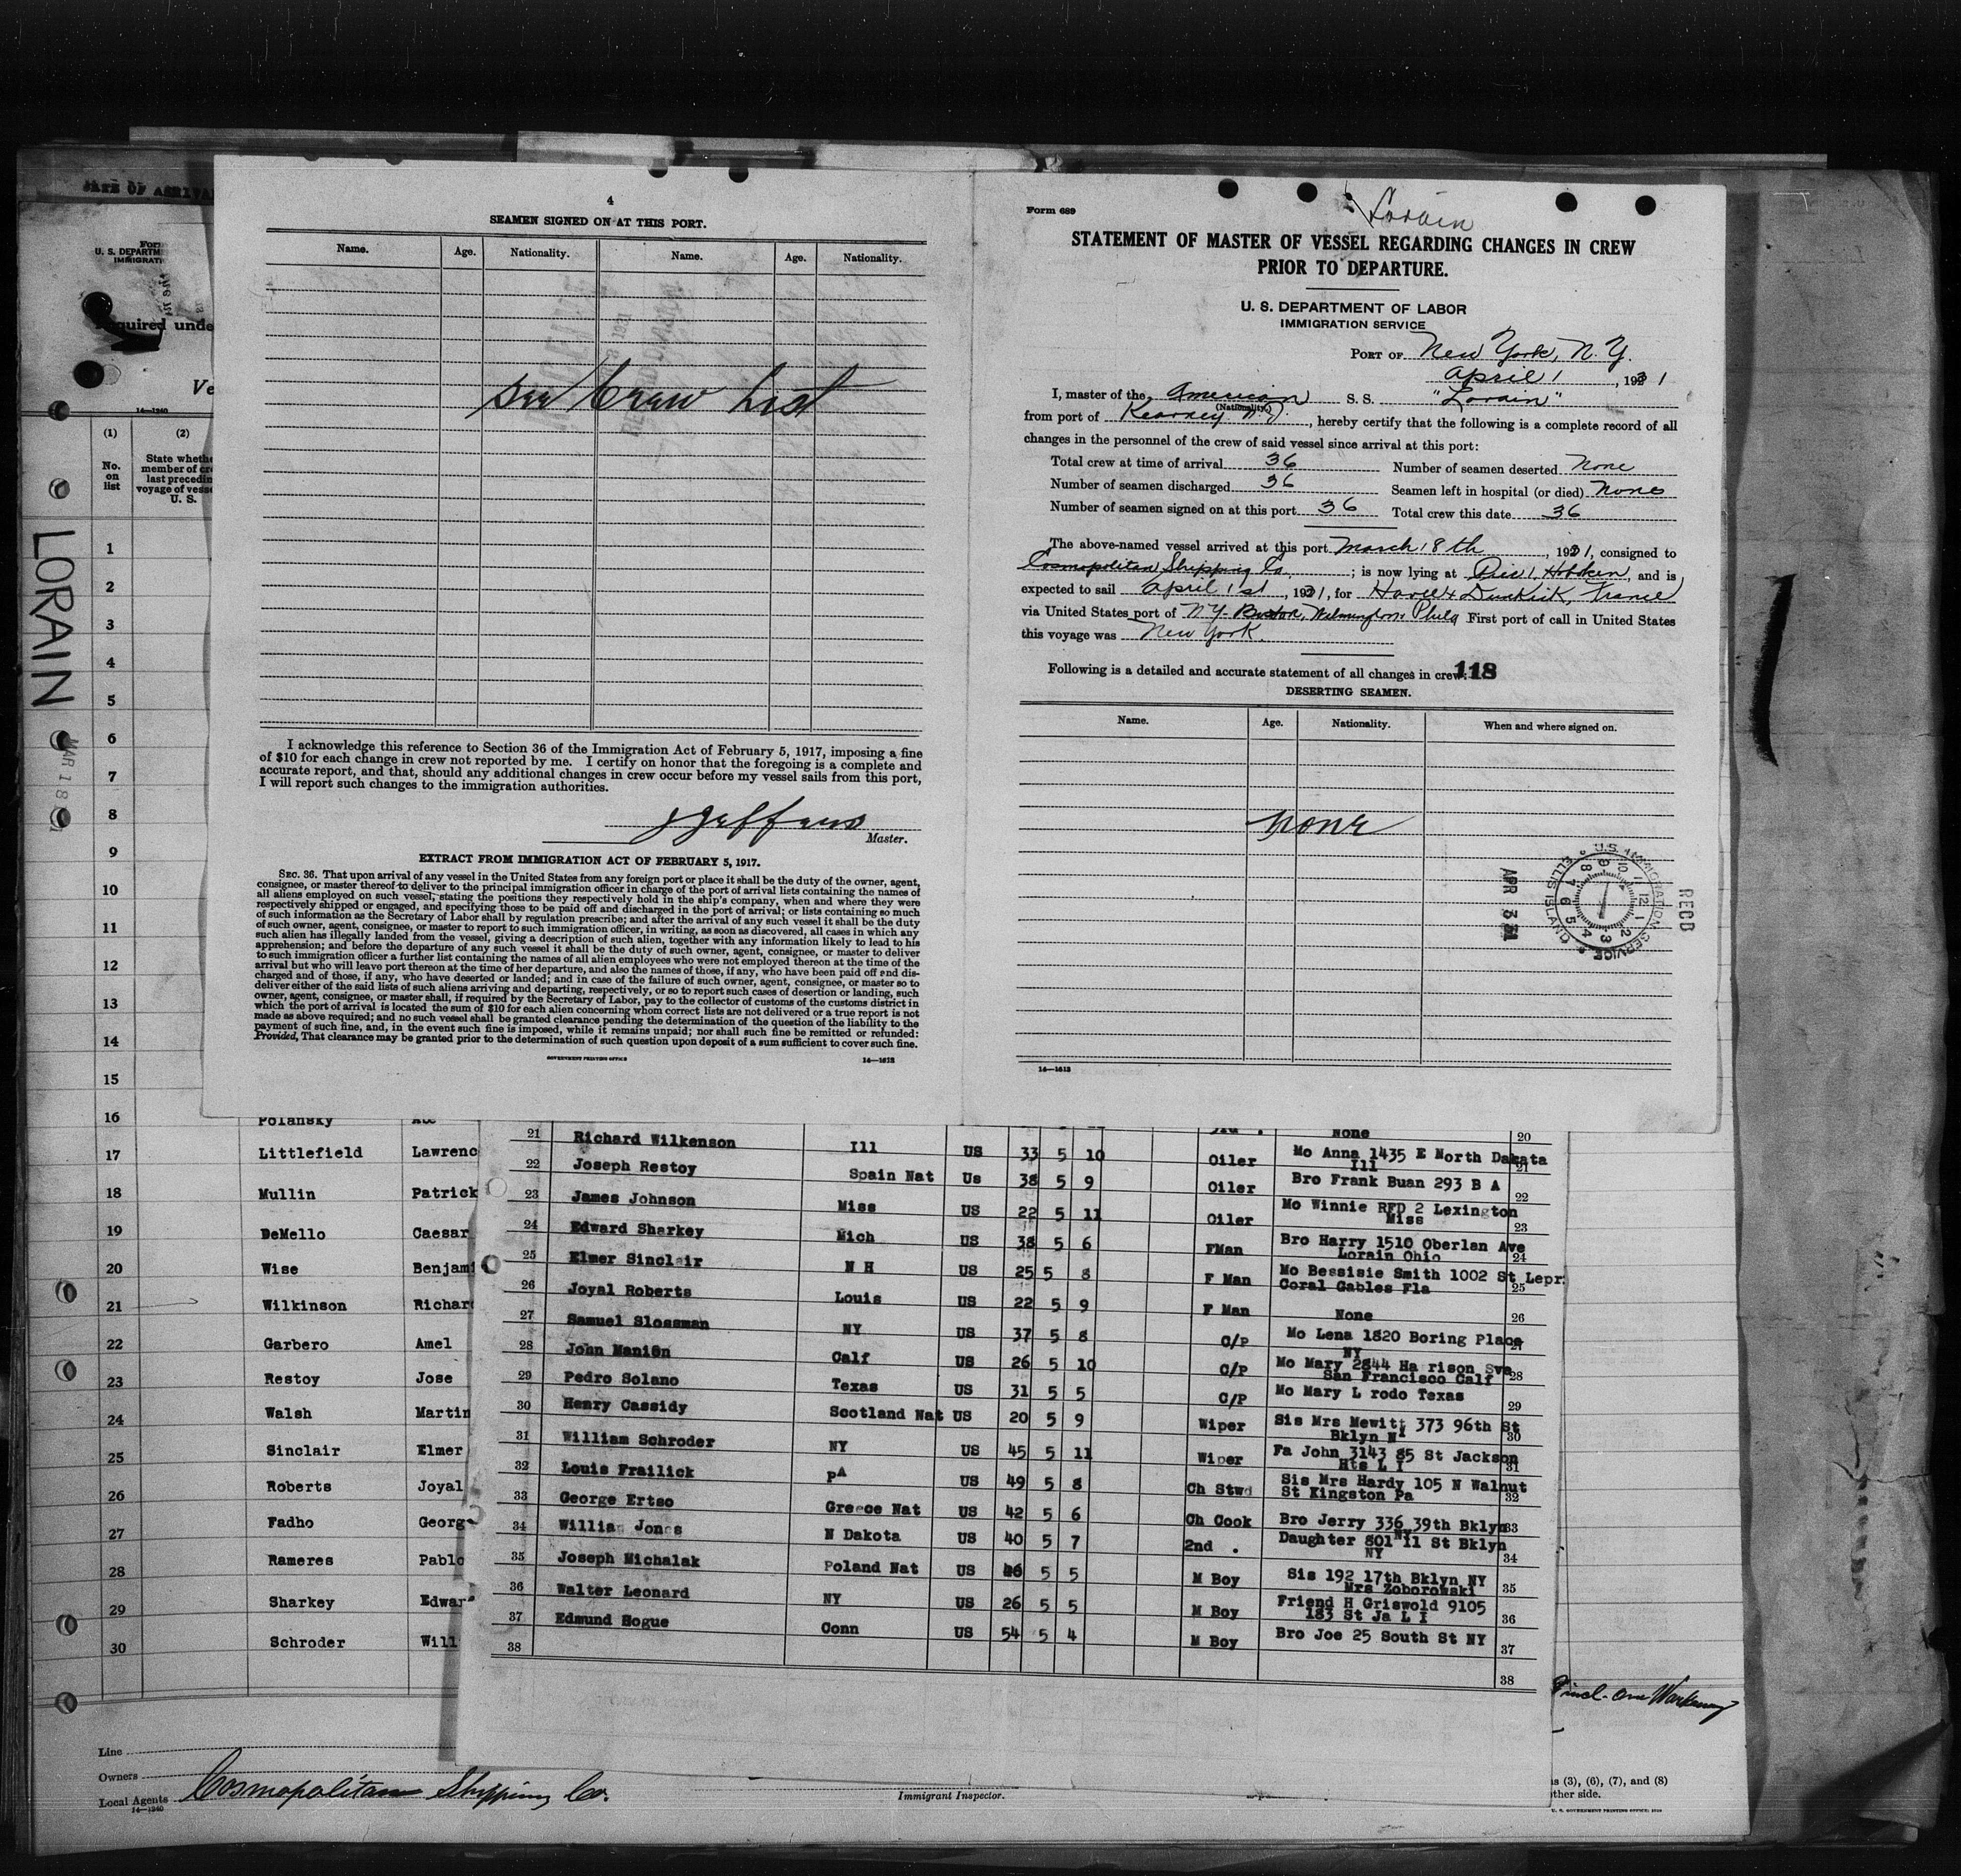 DATE OF ARRIVAL
U. S. DEPARTM
IMMIGRATI
quired unde
Ve
14—1240
(1)
(2)
No.
on
list
State wheth
member of cr
last precedin
voyage of vess
U. S.
LORAIN
MAR 18
1
2
3
4
5
6
7
8
9
10
11
12
13
14
15
16 Polansky Abe
17 Littlefield Lawrenc
18 Mullin Patrick
19 DeMello Caesar
20 Wise Benjami
21 Wilkinson Richar
22 Garbero Amel
23 Restoy Jose
24 Walsh Martin
25 Sinclair Elmer
26 Roberts Joyal
27 Fadho Georg
28 Rameres Pablo
29 Sharkey Edwar
30 Schroder Will
Line
Owners
Local Agents Cosmopolitan Shipping Co.
14—1240
Immigrant Inspector.
s (3), (6), (7), and (8)
ther side.
U. S. GOVERNMENT PRINTING OFFICE:
4
SEAMEN SIGNED ON AT THIS PORT.
Name. Age. Nationality. Name. Age. Nationality.
See Crew List
I acknowledge this reference to Section 36 of the Immigration Act of February 5, 1917, imposing a fine
of $10 for each change in crew not reported by me. I certify on honor that the foregoing is a complete and
accurate report, and that, should any additional changes in crew occur before my vessel sails from this port,
I will report such changes to the immigration authorities.
Master.
EXTRACT FROM IMMIGRATION ACT OF FEBRUARY 5, 1917.
SEC. 36. That upon arrival of any vessel in the United States from any foreign port or place it shall be the duty of the owner, agent,
consignee, or master thereof to deliver to the principal immigration officer in charge of the port of arrival lists containing the names of
all aliens employed on such vessel, stating the positions they respectively hold in the ship's company, when and where they were
respectively shipped or engaged, and specifying those to be paid off and discharged in the port of arrival; or lists containing so much
of such information as the Secretary of Labor shall by regulation prescribe; and after the arrival of any such vessel it shall be the duty
of such owner, agent, consignee, or master to report to such immigration officer, in writing, as soon as discovered, all cases in which any
such alien has illegally landed from the vessel, giving a description of such alien, together with any information likely to lead to his
apprehension; and before the departure of any such vessel it shall be the duty of such owner, agent, consignee, or master to deliver
to such immigration officer a further list containing the names of all alien employees who were not employed thereon at the time of the
arrival but who will leave port thereon at the time of her departure, and also the names of those, if any, who have been paid off and dis-
charged and of those, if any, who have deserted or landed; and in case of the failure of such owner, agent, consignee, or master so to
deliver either of the said lists of such aliens arriving and departing, respectively, or so to report such cases of desertion or landing, such
owner, agent, consignee, or master shall, if required by the Secretary of Labor, pay to the collector of customs of the customs district in
which the port of arrival is located the sum of $10 for each alien concerning whom correct lists are not delivered or a true report is not
made as above required; and no such vessel shall be granted clearance pending the determination of the question of the liability to the
payment of such fine, and, in the event such fine is imposed, while it remains unpaid; nor shall such fine be remitted or refunded:
Provided, That clearance may be granted prior to the determination of such question upon deposit of a sum sufficient to cover such fine.
GOVERNMENT PRINTING OFFICE 14—1613
Form 689
Lorain
STATEMENT OF MASTER OF VESSEL REGARDING CHANGES IN CREW
PRIOR TO DEPARTURE.
U. S. DEPARTMENT OF LABOR
IMMIGRATION SERVICE
PORT OF New York, N. Y.
April 1, 1931
I, master of the American S. S. "Lorain"
(Nationality.)
from port of Kearney N. J., hereby certify that the following is a complete record of all
changes in the personnel of the crew of said vessel since arrival at this port:
Total crew at time of arrival 36 Number of seamen deserted None
Number of seamen discharged 36 Seamen left in hospital (or died) None
Number of seamen signed on at this port 36 Total crew this date 36
The above-named vessel arrived at this port March 18th, 1931, consigned to
Cosmopolitan Shipping Co.; is now lying at Pier 1, Hoboken, and is
expected to sail April 1st, 1931, for Havre & Dunkirk, France
via United States port of N.Y. Boston, Wilmington Phila First port of call in United States
this voyage was New York.
Following is a detailed and accurate statement of all changes in crew: 118
DESERTING SEAMEN.
Name. Age. Nationality. When and where signed on.
none
APR 3 31
U. S. IMMIGRATION SERVICE ELLIS ISLAND
RECD
14—1613
None 20
21 Richard Wilkenson Ill US 33 5 10 Oiler Mo Anna 1435 E North Dakata
Ill 21
22 Joseph Restoy Spain Nat Us 38 5 9 Oiler Bro Frank Buan 293 B A 22
23 James Johnson Miss US 22 5 11 Oiler Mo Winnie RFD 2 Lexington
Miss 23
24 Edward Sharkey Mich US 38 5 6 FMan Bro Harry 1510 Oberlan Ave
Lorain Ohio 24
25 Elmer Sinclair N H US 25 5 8 F Man Mo Bessisie Smith 1002 St Lepr
Coral Gables Fla 25
26 Joyal Roberts Louis US 22 5 9 F Man None 26
27 Samuel Slossman NY US 37 5 8 C/P Mo Lena 1820 Boring Place
NY 27
28 John Manion Calf US 26 5 10 C/P Mo Mary 2844 Ha rison Sve
San Francisco Calf 28
29 Pedro Solano Texas US 31 5 5 C/P Mo Mary L rodo Texas 29
30 Henry Cassidy Scotland Nat US 20 5 9 Wiper Sis Mrs Mewitt 373 96th St
Bklyn NY 30
31 William Schroder NY US 45 5 11 Wiper Fa John 3143 85 St Jackson
Hts L I 31
32 Louis Frailick PA US 49 5 8 Ch Stwd Sis Mrs Hardy 105 N Walnut
St Kingston Pa 32
33 George Ertso Greece Nat US 42 5 6 Ch Cook Bro Jerry 336 39th Bklyn
NY 33
34 William Jones N Dakota US 40 5 7 2nd . Daughter 801 11 St Bklyn
NY 34
35 Joseph Michalak Poland Nat US 5 5 M Boy Sis 192 17th Bklyn NY
Mrs Zoborowski 35
36 Walter Leonard NY US 26 5 5 M Boy Friend H Griswold 9105
183 St Ja L I 36
37 Edmund Hogue Conn US 54 5 4 M Boy Bro Joe 25 South St NY 37
38 38